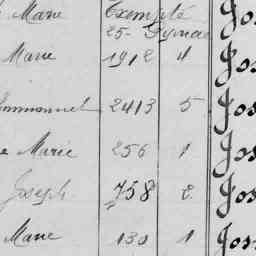 Marie Exempté Jos
25- Gynae
Marie 1912 4 Jos
Emmanuel 2413 5 Jos
e Marie 256 1 Jos
Joseph 758 2 Jos
Marie 130 1 Jos